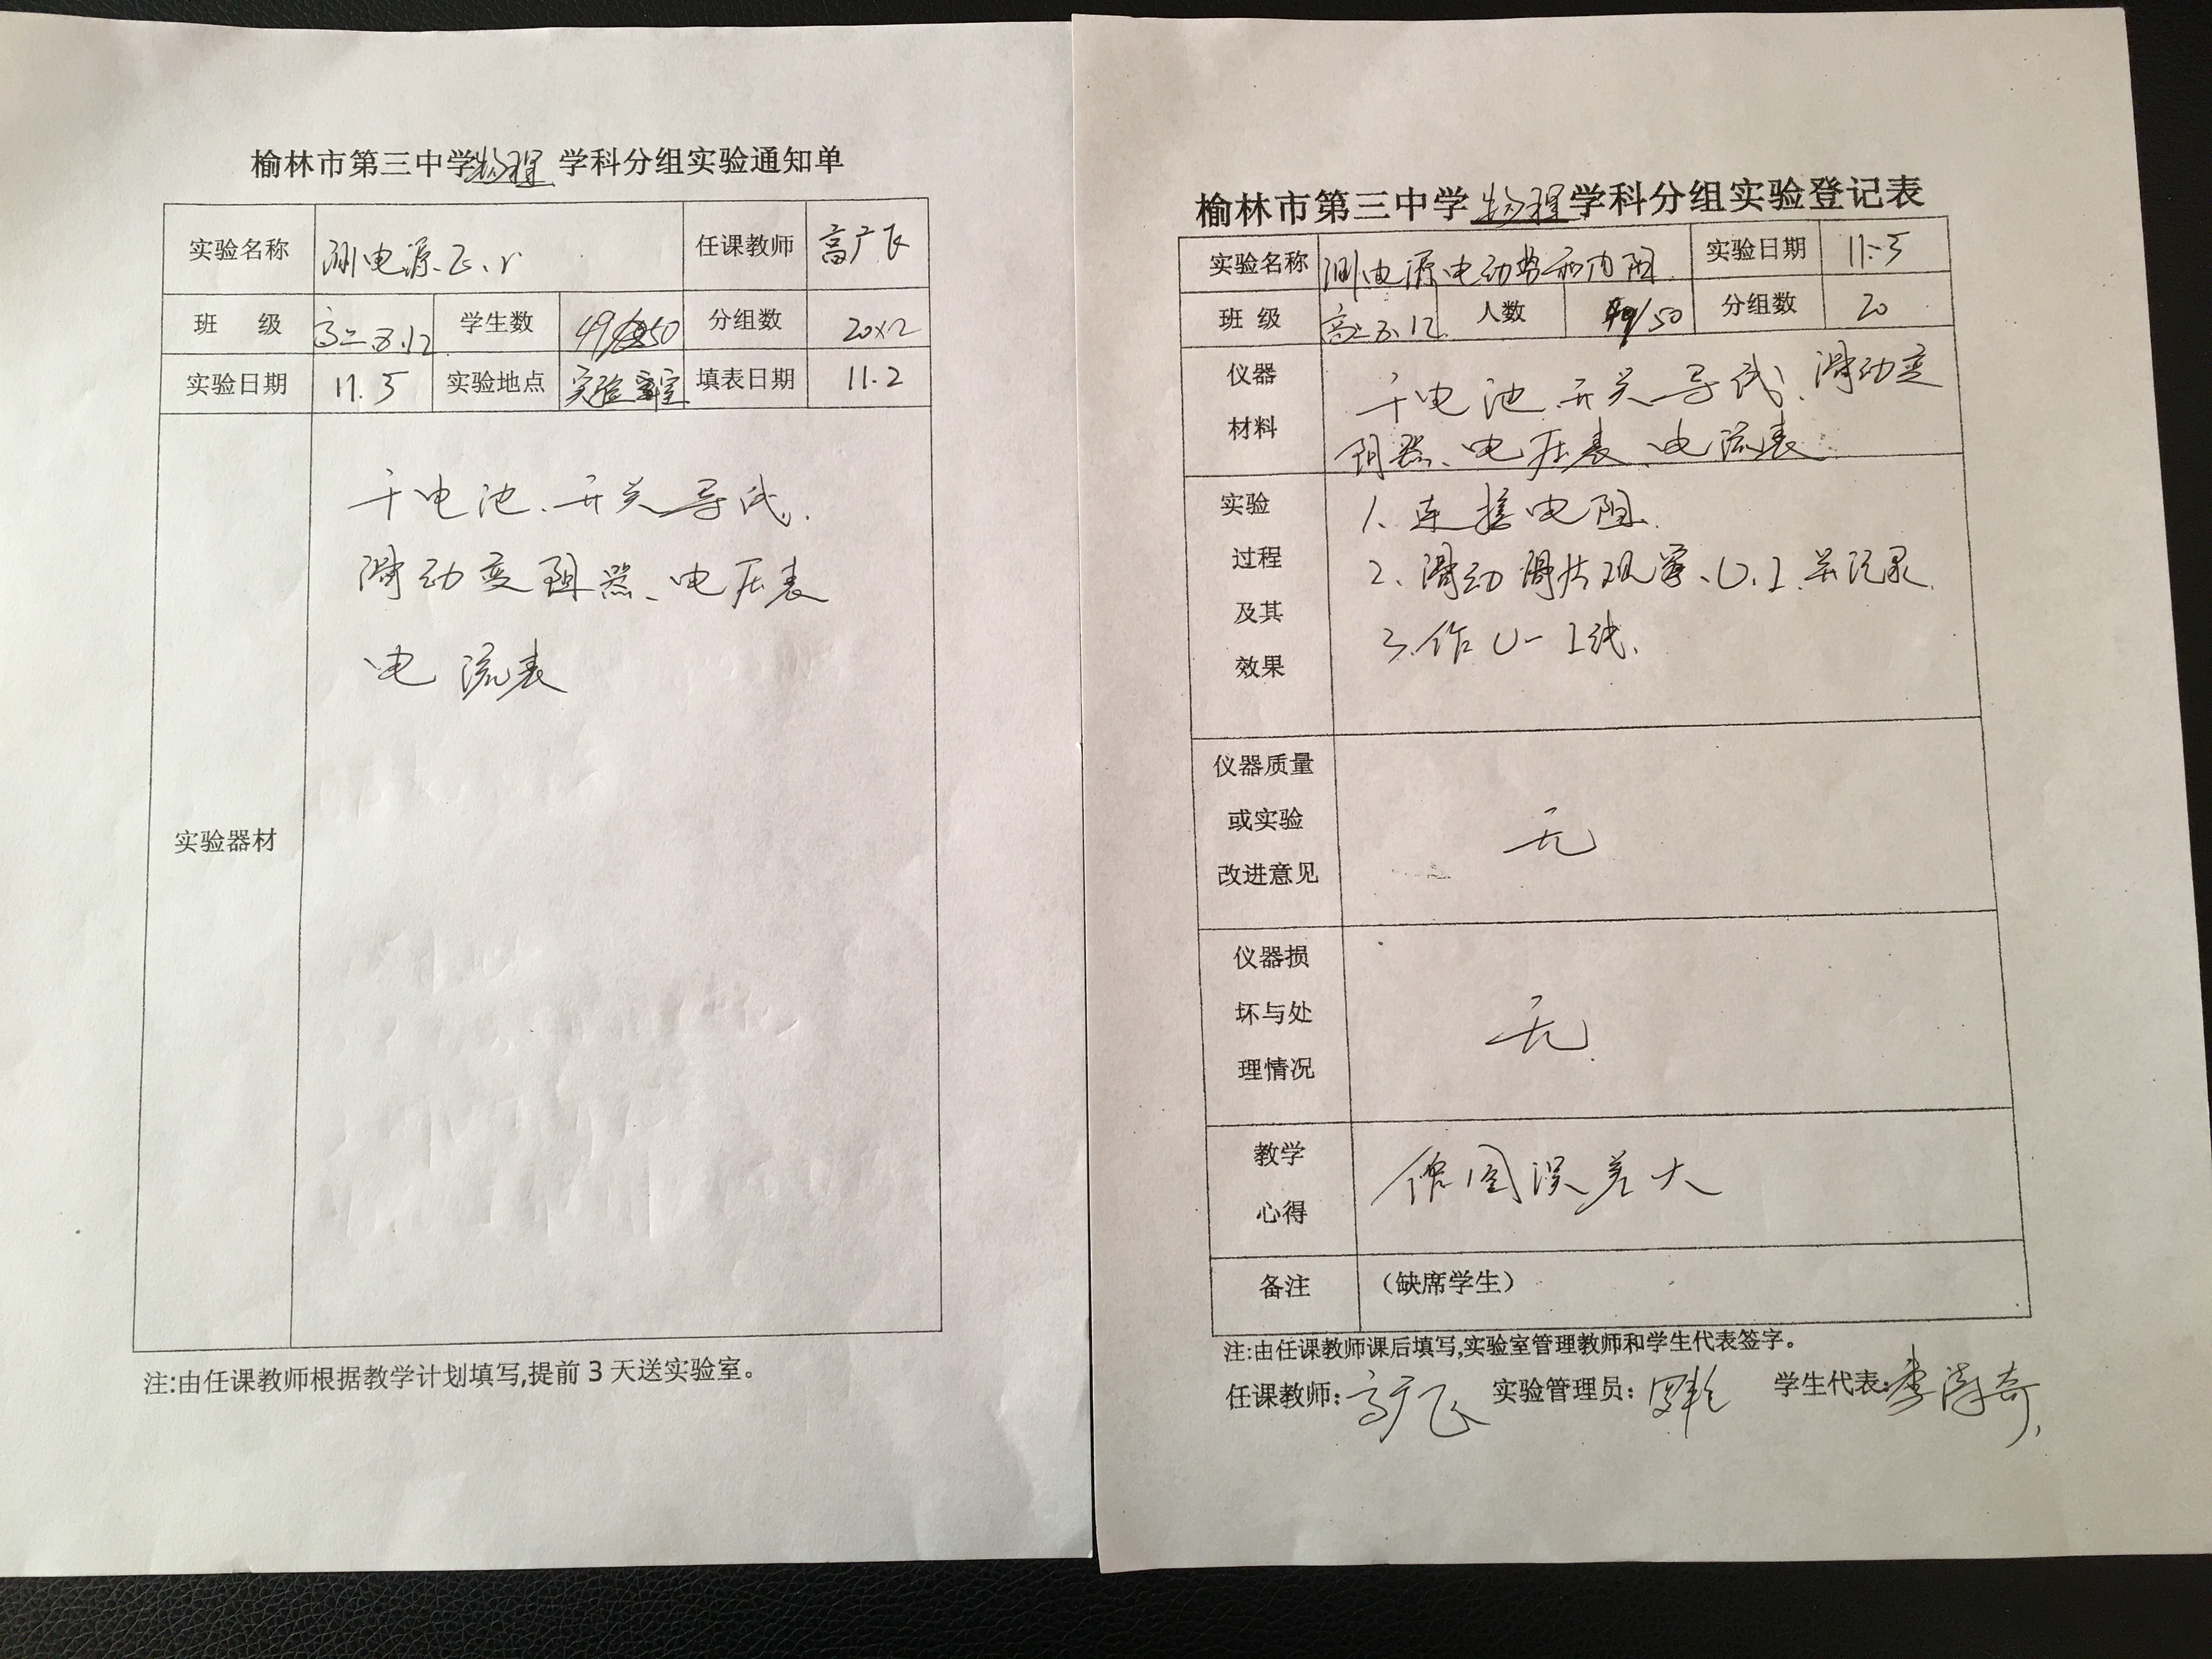 榆林市第三中学物理 学科分组实验通知单
实验名称 测电源E、r 任课教师 高广飞
班 级 高二.5.12 学生数 49/50 分组数 20×2
实验日期 11.5 实验地点 实验室 填表日期 11.2
实验器材
干电池、开关 导线、
滑动变阻器、电压表
电流表
注:由任课教师根据教学计划填写,提前3天送实验室。
榆林市第三中学物理学科分组实验登记表
实验名称 测电源电动势和内阻 实验日期 11.5
班 级 高二.5.12 人数 49/50 分组数 20
仪器
材料
干电池、开关 导线、滑动变
阻器、电压表、电流表
实验
过程
及其
效果
1、连接电阻.
2、滑动滑片观察、U、I并记录.
3、作U-I线.
仪器质量
或实验
改进意见
无
仪器损
坏与处
理情况
无
教学
心得
作图误差大
备注 （缺席学生）
注:由任课教师课后填写,实验室管理教师和学生代表签字。
任课教师:高广飞 实验管理员: 学生代表: